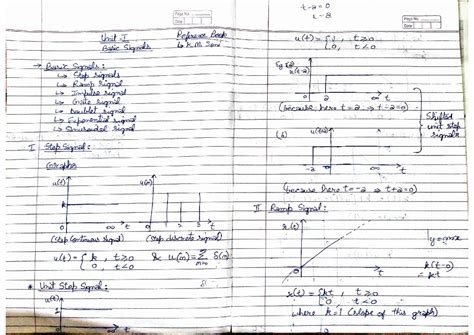 Unit I
Basic Signals
Reference Book
→ Basic Signals:
↳ Step signals
↳ Ramp signal
↳ Impulse signal
↳ Doublet signal
↳ Exponential signal
↳ Sinusoidal signal
I Step Signal:
Graphs
u(t)
k
0
t
u(n)
0 1 2 3 t
(Step Continuous signal) (Step discrete signal)
u(t) = { k, t≥0
0, t<0
& u(n) =
* Unit Step Signal:
u(t)
t-2=0
u(t) = { 1, t≥0
0, t<0
Eg (a)
u(t-2)
0 2 ∞ t
(because here t=2 ⇒ t-2=0)
(b)
-2 0 ∞ t
(because here t=-2 ⇒ t+2=0)
Shifted
unit step
signals
II Ramp Signal:
t
y=mx
x(t) = { kt, t≥0
0, t<0
where k=1 (slope of this graph)